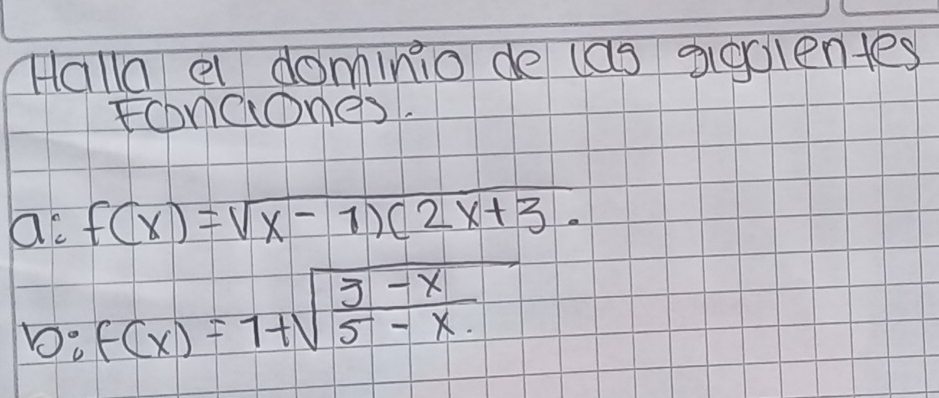 Halla el dominio de las siguientes
Funciones.
a: f(x) = √x - 1)(2x + 3.
b: f(x) = 1 + √3 - x / 5 - x.